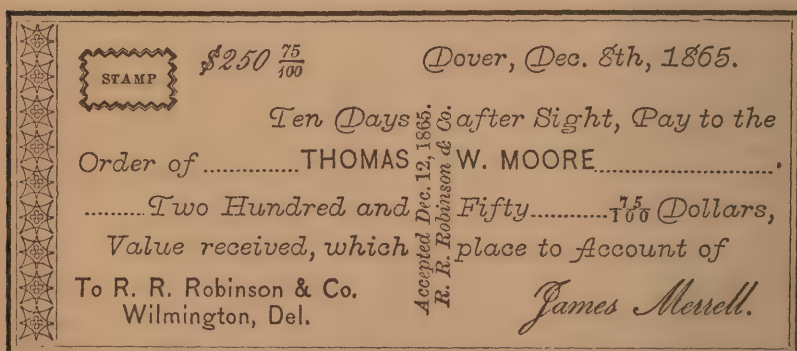 STAMP
$250 75/100
Dover, Dec. 8th, 1865.
Ten Days after Sight, Pay to the
Order of ............ THOMAS W. MOORE ........................
........ Two Hundred and Fifty .......... 75/100 Dollars,
Value received, which place to Account of
To R. R. Robinson & Co.
Wilmington, Del.
James Merrell.
Accepted Dec. 12, 1865.
R. R. Robinson & Co.